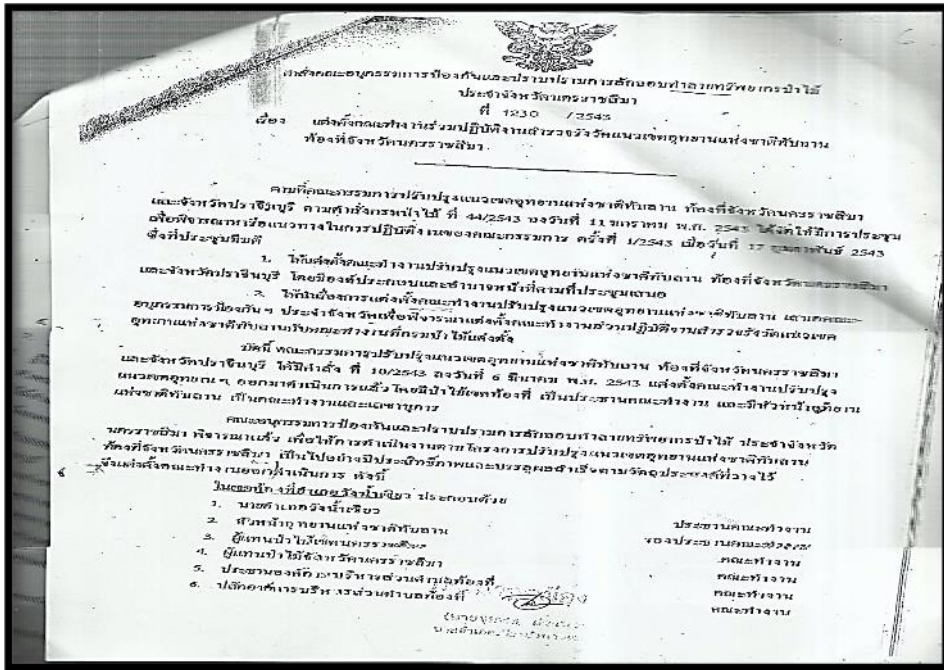 คำสั่งคณะอนุกรรมการป้องกันและปราบปรามการลักลอบทำลายทรัพยากรป่าไม้
ประจำจังหวัดนครราชสีมา
ที่ 1230 /2543
เรื่อง แต่งตั้งคณะทำงานร่วมปฏิบัติงานสำรวจรังวัดแนวเขตอุทยานแห่งชาติทับลาน
ท้องที่จังหวัดนครราชสีมา
ตามที่คณะกรรมการปรับปรุงแนวเขตอุทยานแห่งชาติทับลาน ท้องที่จังหวัดนครราชสีมา
และจังหวัดปราจีนบุรี ตามคำสั่งกรมป่าไม้ ที่ 44/2543 ลงวันที่ 11 มกราคม พ.ศ. 2543 ได้จัดให้มีการประชุม
เพื่อพิจารณาหารือแนวทางในการปฏิบัติงานของคณะกรรมการ ครั้งที่ 1/2543 เมื่อวันที่ 17 กุมภาพันธ์ 2543
ซึ่งที่ประชุมมีมติ
1. ให้แต่งตั้งคณะทำงานปรับปรุงแนวเขตอุทยานแห่งชาติทับลาน ท้องที่จังหวัดนครราชสีมา
และจังหวัดปราจีนบุรี โดยมีองค์ประกอบและอำนาจหน้าที่ตามที่ประชุมเสนอ
2. ให้นำเรื่องการแต่งตั้งคณะทำงานปรับปรุงแนวเขตอุทยานแห่งชาติทับลาน เสนอคณะ
อนุกรรมการป้องกันฯ ประจำจังหวัดเพื่อพิจารณาแต่งตั้งคณะทำงานร่วมปฏิบัติงานสำรวจรังวัดแนวเขต
อุทยานแห่งชาติทับลานกับคณะทำงานที่กรมป่าไม้แต่งตั้ง
บัดนี้ คณะกรรมการปรับปรุงแนวเขตอุทยานแห่งชาติทับลาน ท้องที่จังหวัดนครราชสีมา
และจังหวัดปราจีนบุรี ได้มีคำสั่ง ที่ 10/2543 ลงวันที่ 6 มีนาคม พ.ศ. 2543 แต่งตั้งคณะทำงานปรับปรุง
แนวเขตอุทยานฯ ออกมาดำเนินการแล้ว โดยมีป่าไม้เขตท้องที่ เป็นประธานคณะทำงาน และมีหัวหน้าอุทยาน
แห่งชาติทับลาน เป็นคณะทำงานและเลขานุการ
คณะอนุกรรมการป้องกันและปราบปรามการลักลอบทำลายทรัพยากรป่าไม้ ประจำจังหวัด
นครราชสีมา พิจารณาแล้ว เพื่อให้การดำเนินงานตามโครงการปรับปรุงแนวเขตอุทยานแห่งชาติทับลาน
ท้องที่จังหวัดนครราชสีมา เป็นไปอย่างมีประสิทธิภาพและบรรลุผลสำเร็จตามวัตถุประสงค์ที่วางไว้
จึงแต่งตั้งคณะทำงานออกดำเนินการ ดังนี้
ในเขตท้องที่อำเภอวังน้ำเขียว ประกอบด้วย
1. นายอำเภอวังน้ำเขียว ประธานคณะทำงาน
2. หัวหน้าอุทยานแห่งชาติทับลาน รองประธานคณะทำงาน
3. ผู้แทนป่าไม้เขตนครราชสีมา คณะทำงาน
4. ผู้แทนป่าไม้จังหวัดนครราชสีมา คณะทำงาน
5. ประธานองค์การบริหารส่วนตำบลท้องที่ คณะทำงาน
6. ปลัดองค์การบริหารส่วนตำบลท้องที่ คณะทำงาน